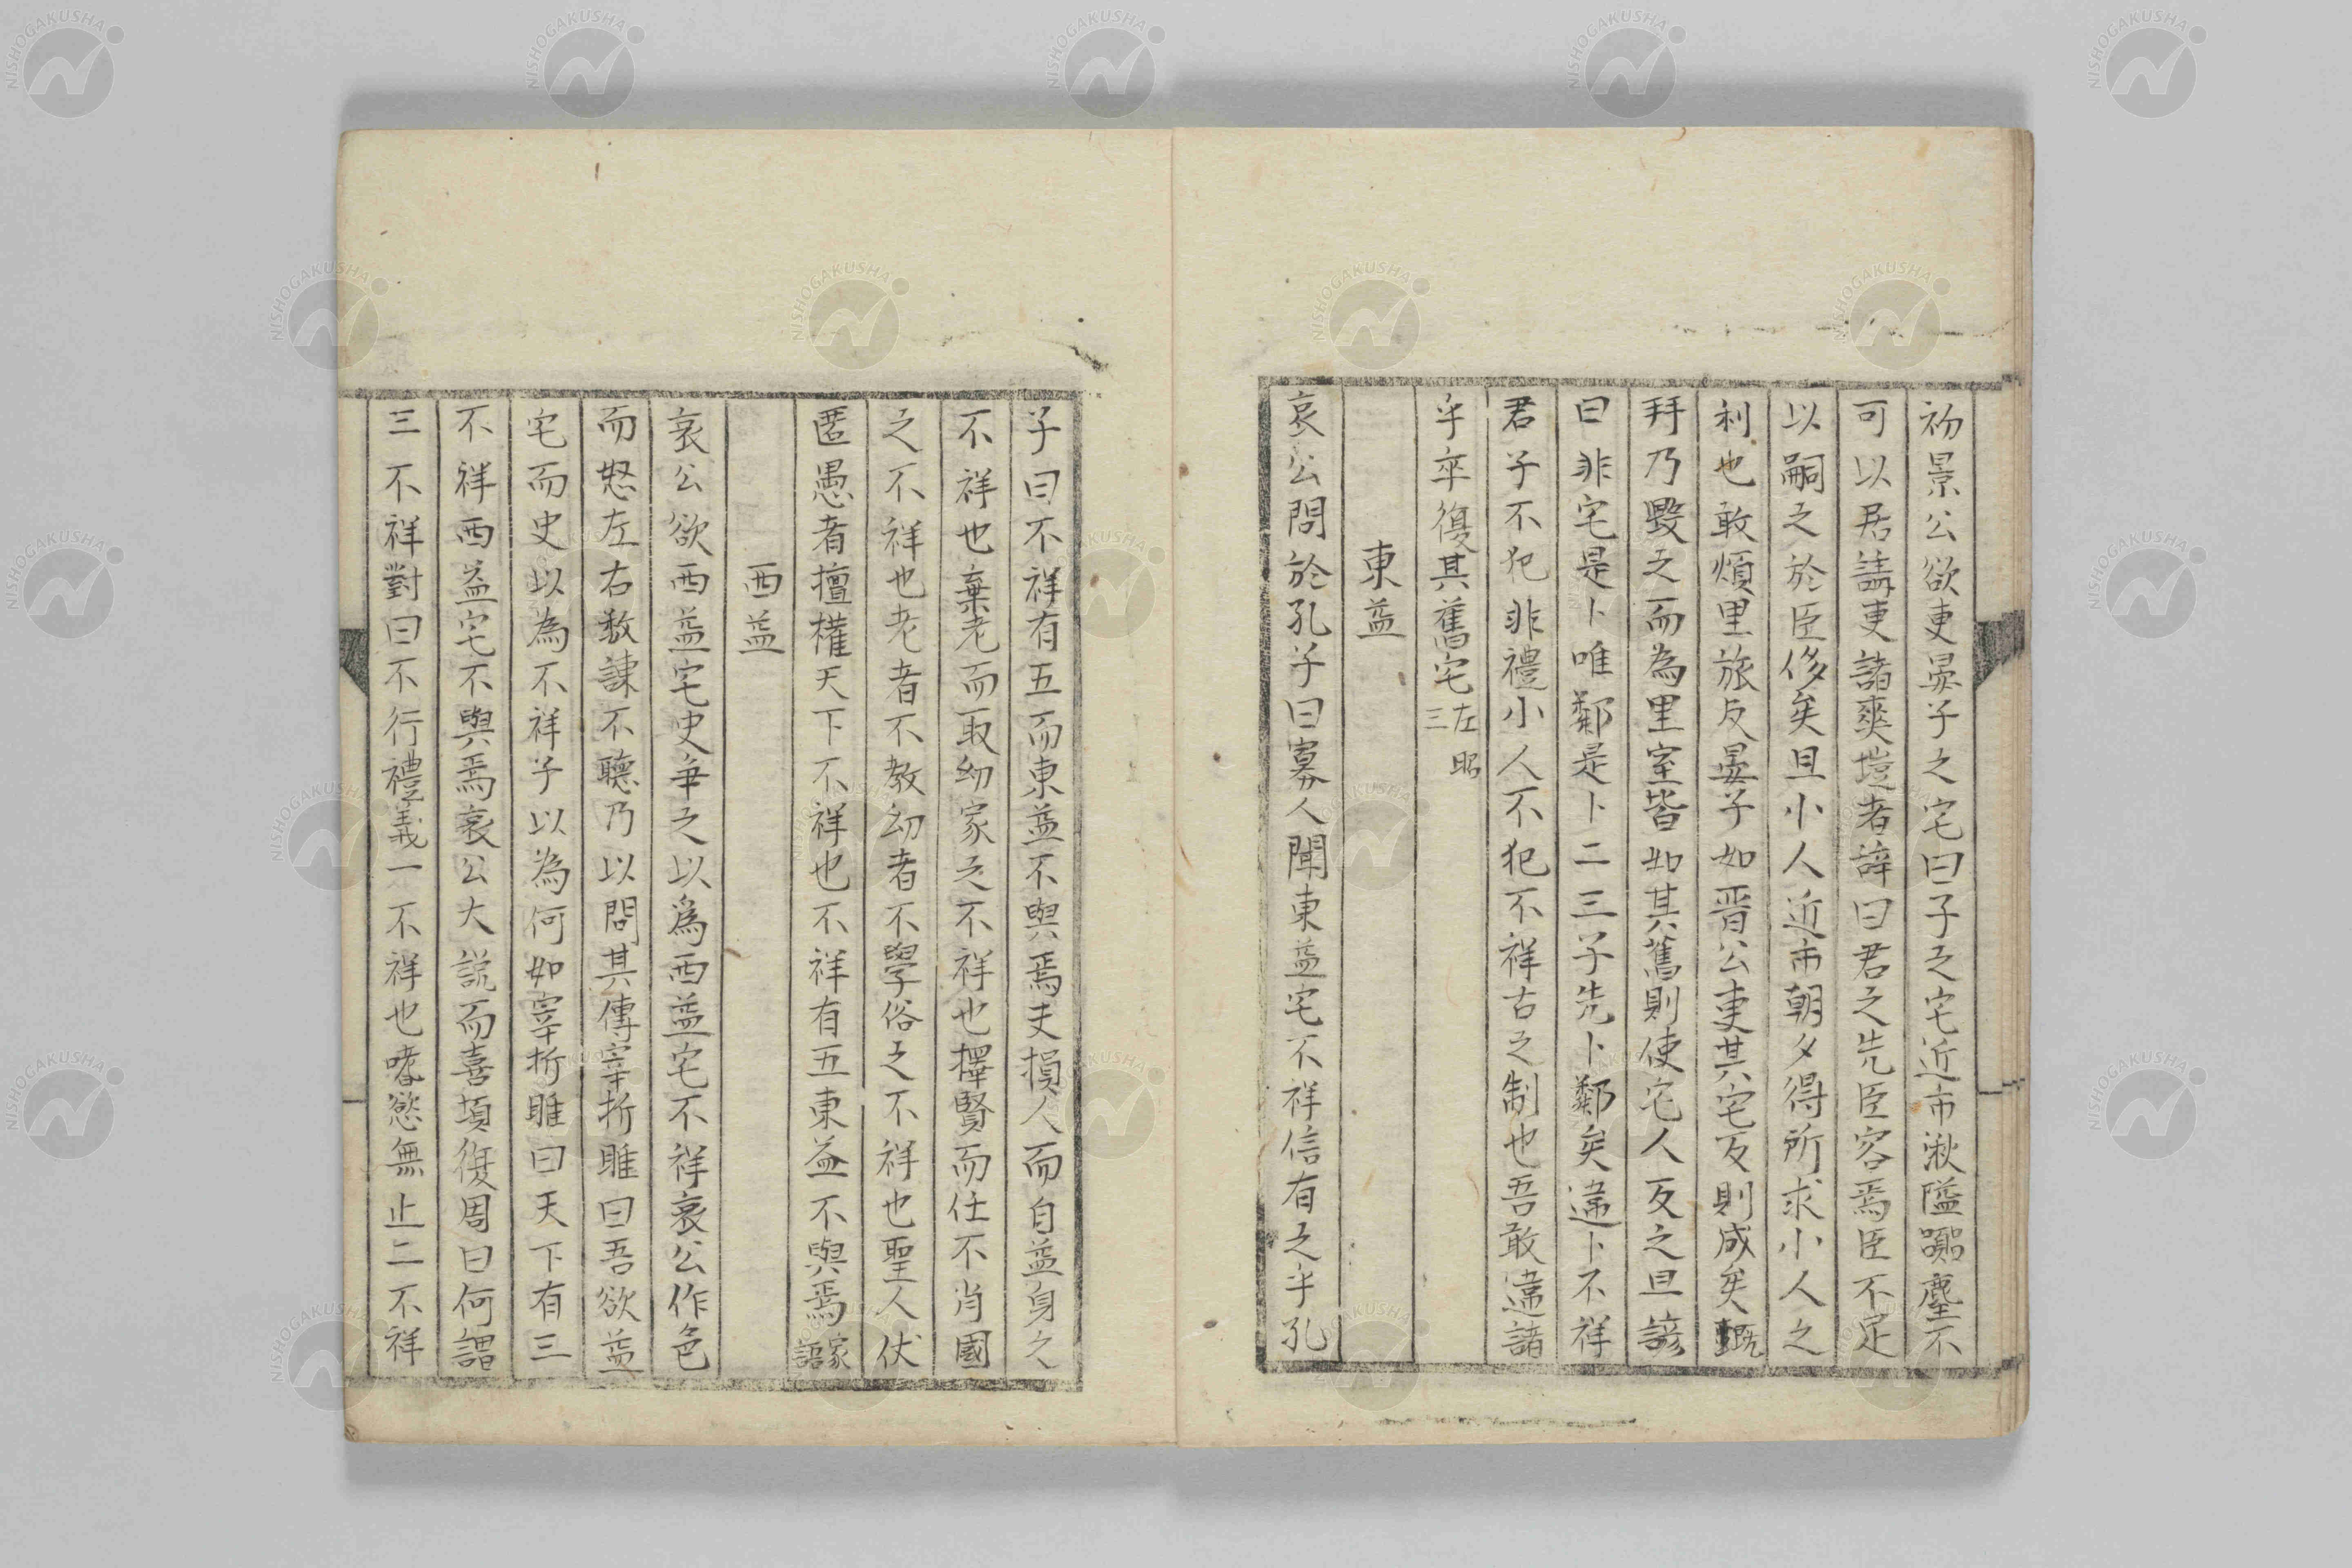 初景公欲更晏子之宅曰子之宅近市湫隘囂塵不
可以居請更諸爽塏者辭曰君之先臣容焉臣不足
以嗣之於臣侈矣且小人近市朝夕得所求小人之
利也敢煩里旅反晏子如晉公更其宅反則成矣既
拜乃毀之而為里室皆如其舊則使宅人反之且諺
曰非宅是卜唯鄰是卜二三子先卜鄰矣違卜不祥
君子不犯非禮小人不犯不祥古之制也吾敢違諸
乎卒復其舊宅左昭三
東益
哀公問於孔子曰寡人聞東益宅不祥信有之乎孔
子曰不祥有五而東益不與焉夫損人而自益身之
不祥也棄老而取幼家之不祥也擇賢而任不肖國
之不祥也老者不教幼者不學俗之不祥也聖人伏
匿愚者擅權天下不祥也不祥有五東益不與焉家語
西益
哀公欲西益宅史爭之以為西益宅不祥哀公作色
而怒左右數諫不聽乃以問其傅宰折睢曰吾欲益
宅而史以為不祥子以為何如宰折睢曰天下有三
不祥西益宅不與焉哀公大說而喜頃復周曰何謂
三不祥對曰不行禮義一不祥也嗜慾無止二不祥
NISHOGAKUSHA